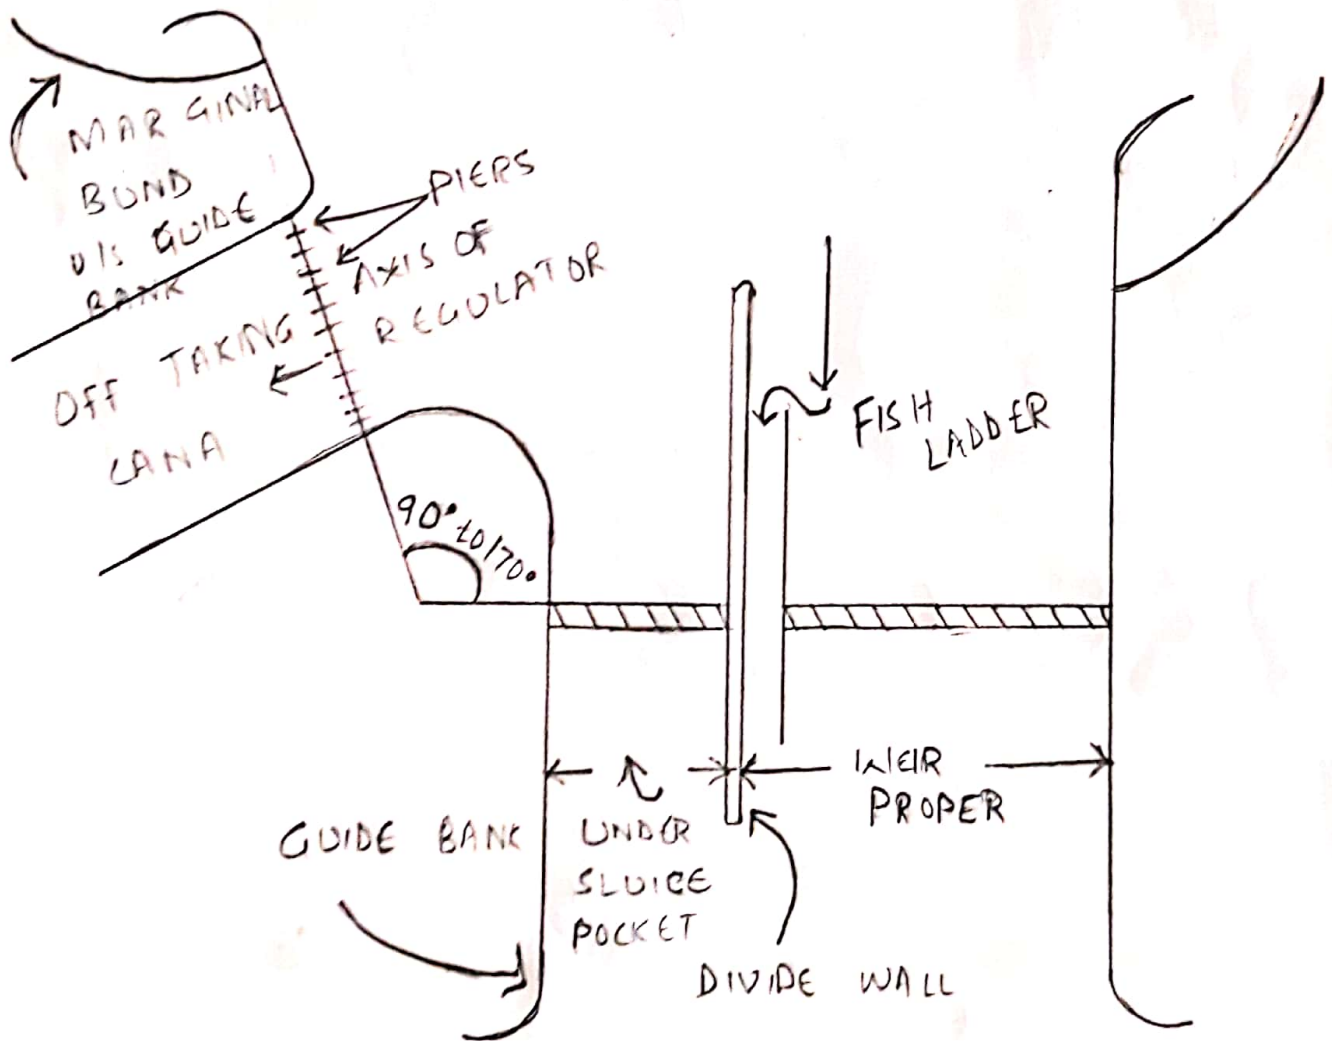 MARGINAL
BUND
U/S GUIDE
BANK
PIERS
AXIS OF
REGULATOR
OFF TAKING
CANA
90° to 170°
FISH
LADDER
WEIR
PROPER
GUIDE BANK
UNDER
SLUICE
POCKET
DIVIDE WALL